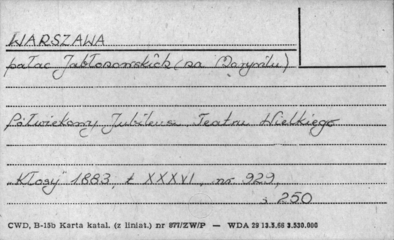 WARSZAWA
pałac Jabłonowskich (na Marymilu)
Półwiekowy Jubileusz Teatru Wielkiego
„Kłosy" 1883, t XXXVI, nr. 929,
s 250
CWD, B-15b Karta katal. (z liniat.) nr 877/ZW/P — WDA 29 13.3.66 3.530.000